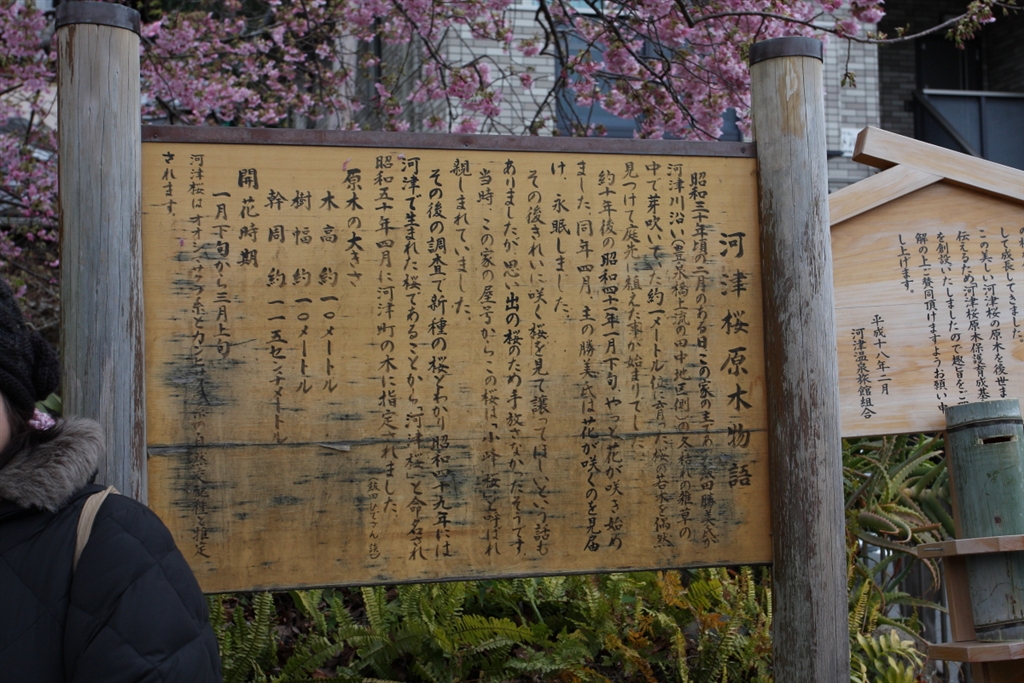 河津桜原木物語
昭和三十年頃の二月のある日この家の主であった飯田勝美氏が
河津川沿い(豊泉橋上流の田中地区側の冬枯れの雑草の
中で芽吹いていた約一メートル位に育った桜の若木を偶然
見つけて庭先に植えた事が始まりでした。
約十年後の昭和四十一年一月下旬、やっと花が咲き始め
ました同年四月、主の勝美氏は花が咲くのを見届
け、永眠しました。
その後きれいに咲く桜を見て譲ってほしいという話も
ありましたが思い出の桜のため手放さなかったそうです。
当時、この家の屋号からこの桜は「小峰桜」と呼ばれ
親しまれていました。
その後の調査で新種の桜とわかり昭和四十九年には
河津で生まれた桜であることから「河津桜」と命名され
昭和五十年四月に河津町の木に指定されました。
(飯田ひでさん談)
原木の大きさ
木高 約一〇メートル
樹幅 約一〇メートル
幹周 約一一五センチメートル
開花時期
一月下旬から三月上旬
河津桜はオオシマザクラ系とカンヒザクラ系の自然交配種と推定
されます。
して成長してきました
この美しい河津桜の原木を後世ま
伝えるため「河津桜原木保護育成基
を創設いたしましたので趣旨をご
解の上ご賛同頂けますようお願い申
し上げます。
平成十八年二月
河津温泉旅館組合